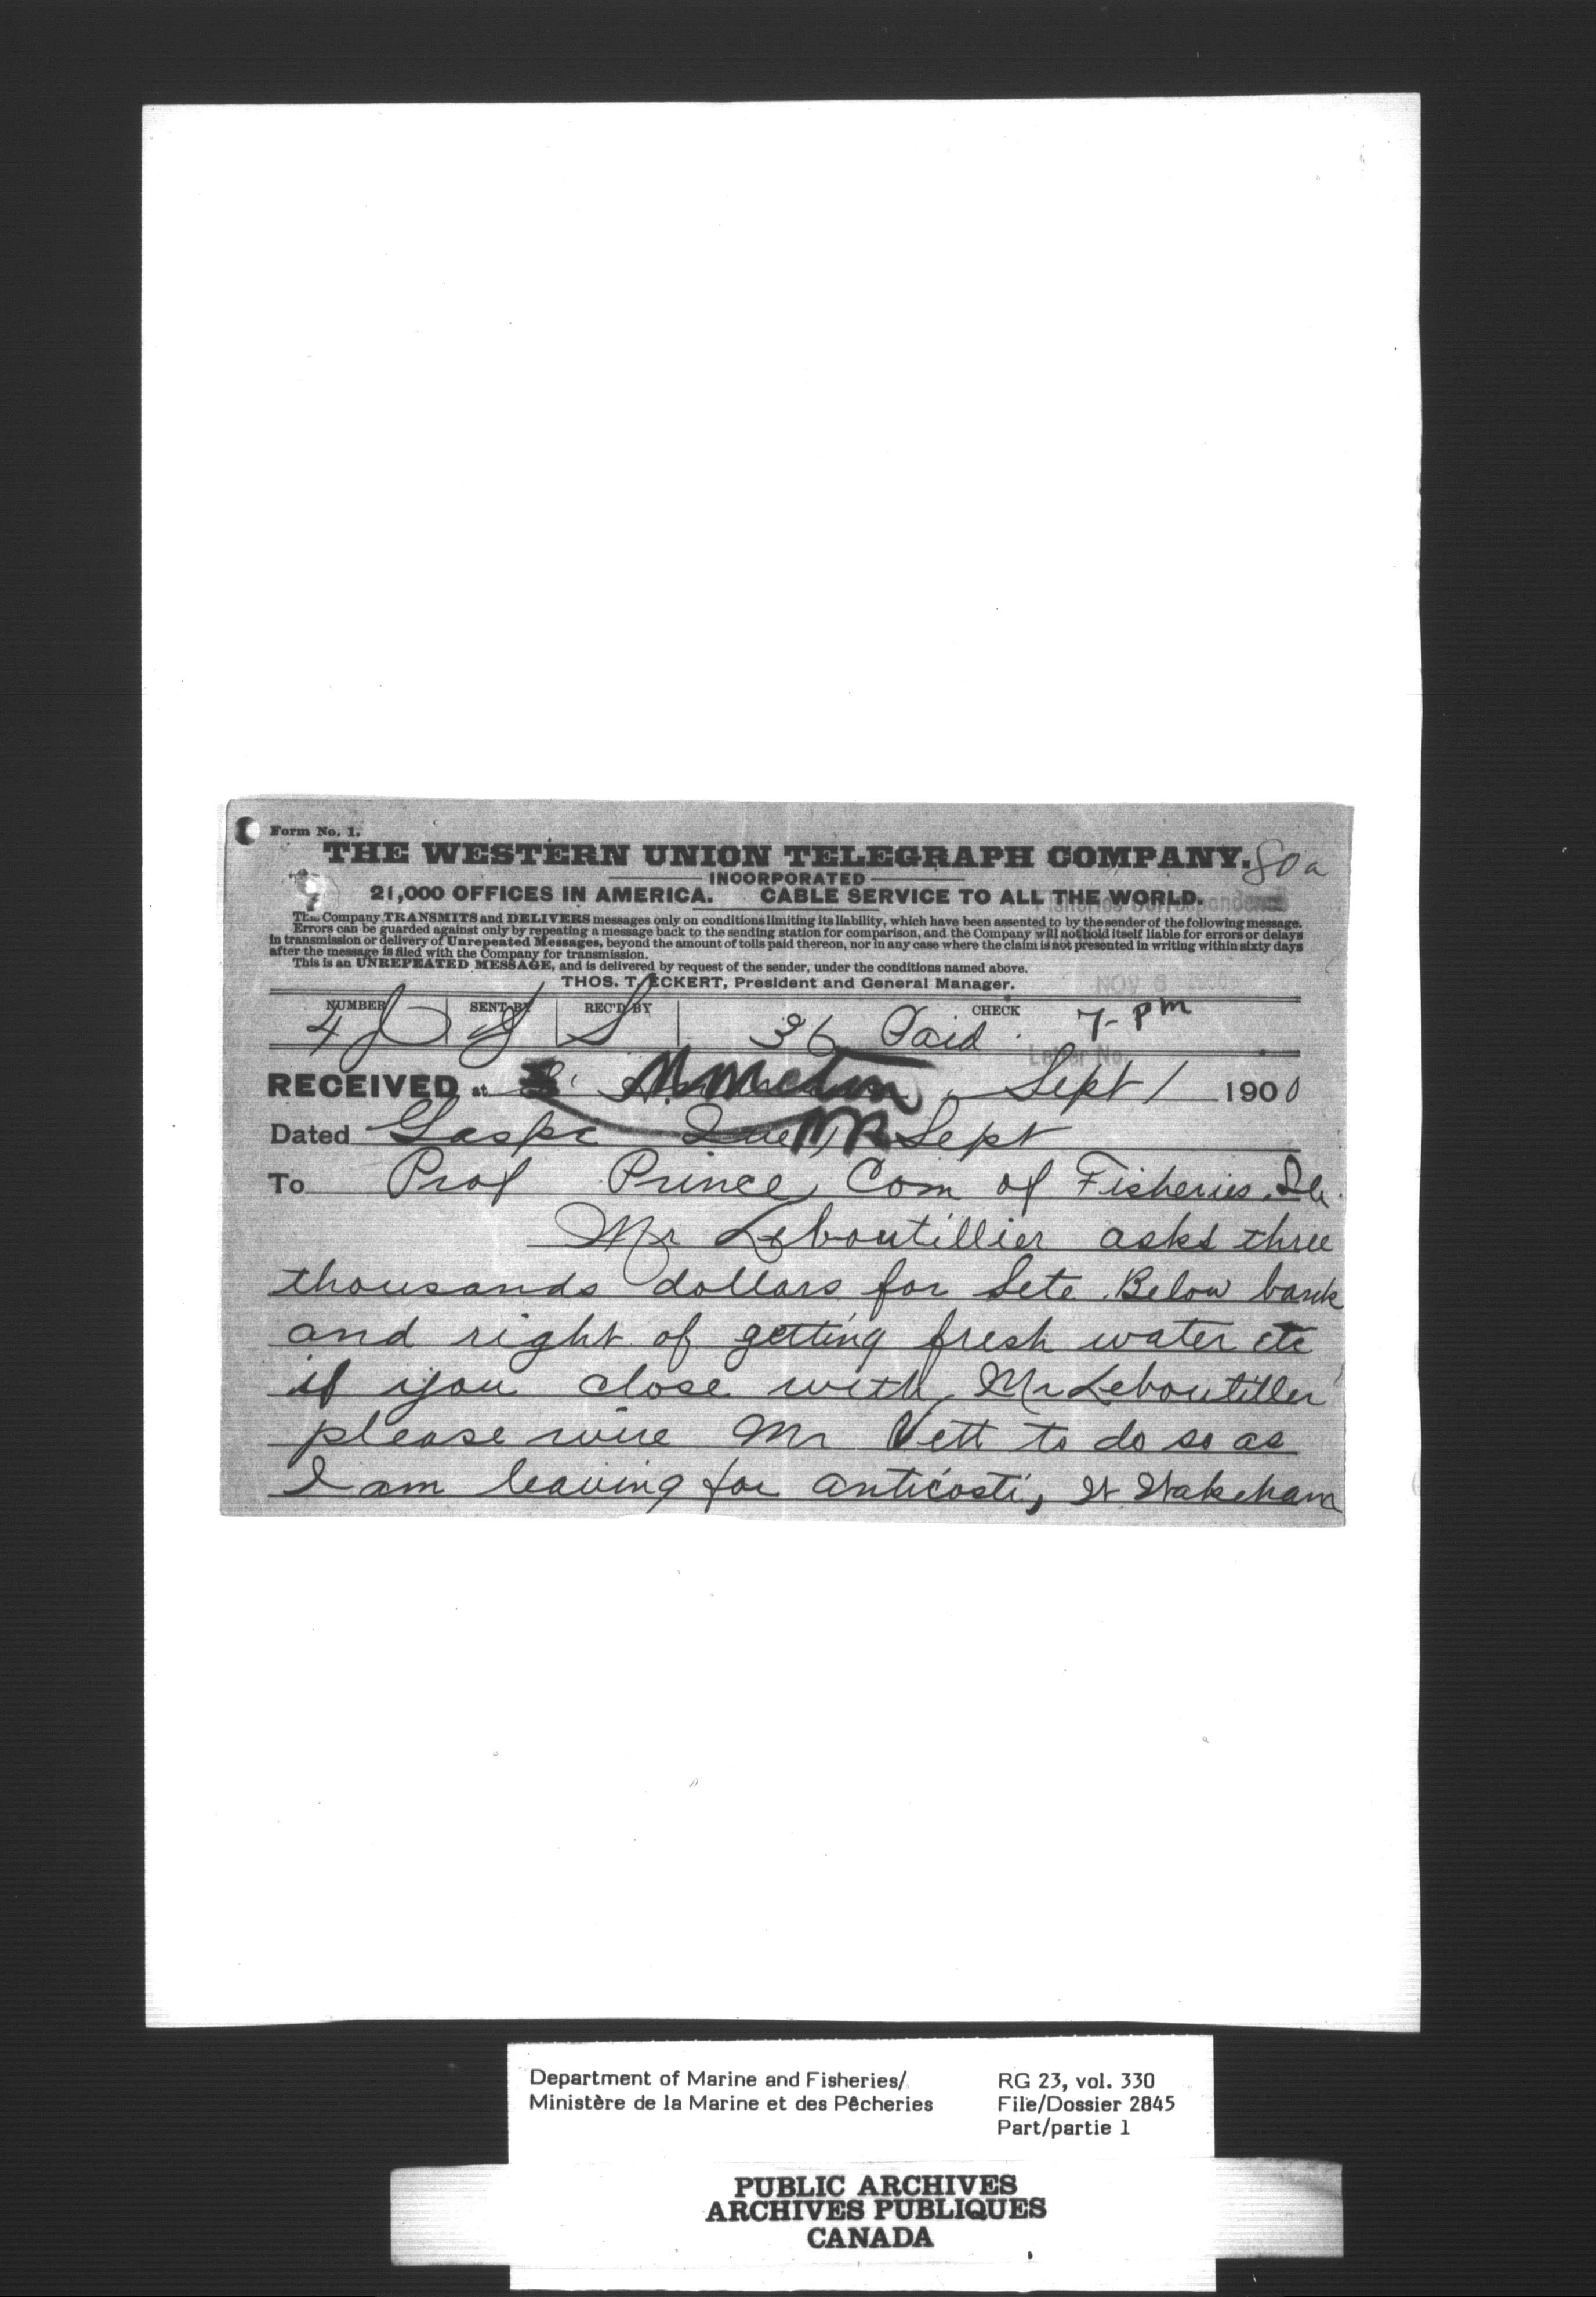 Form No. 1.
THE WESTERN UNION TELEGRAPH COMPANY. 80a
INCORPORATED
21,000 OFFICES IN AMERICA. CABLE SERVICE TO ALL THE WORLD.
Fisheries Correspondence
The Company TRANSMITS and DELIVERS messages only on conditions limiting its liability, which have been assented to by the sender of the following message.
Errors can be guarded against only by repeating a message back to the sending station for comparison, and the Company will not hold itself liable for errors or delays
in transmission or delivery of Unrepeated Messages, beyond the amount of tolls paid thereon, nor in any case where the claim is not presented in writing within sixty days
after the message is filed with the Company for transmission.
This is an UNREPEATED MESSAGE, and is delivered by request of the sender, under the conditions named above.
THOS. T. ECKERT, President and General Manager.
NOV 6
NUMBER SENT BY REC'D BY CHECK
4 S 36 Paid 7- pm
Letter No.
RECEIVED at Sept 1 1900
Dated Gaspe Que Sept
To Prof Prince, Com of Fisheries
Mr Leboutillier asks three
thousands dollars for Sete. Below bank
and right of getting fresh water etc
if you close with, Mr Leboutiller
please wire Mr Vett to do so as
I am leaving for anticosti, W Wakeham
Department of Marine and Fisheries/
Ministère de la Marine et des Pêcheries
RG 23, vol. 330
File/Dossier 2845
Part/partie 1
PUBLIC ARCHIVES
ARCHIVES PUBLIQUES
CANADA